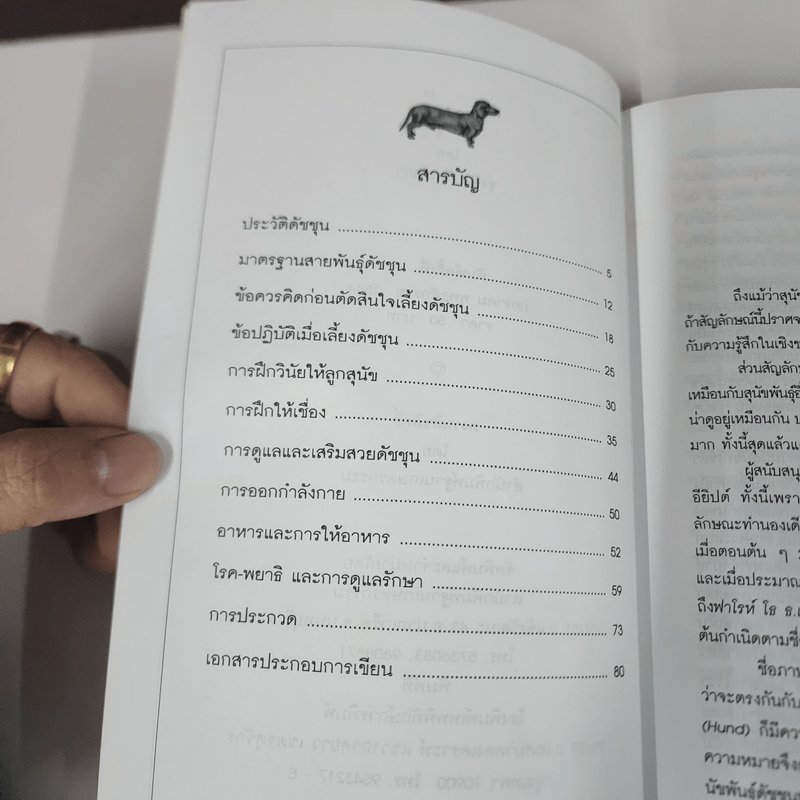 สารบัญ
ประวัติดัชชุน ........ 5
มาตรฐานสายพันธุ์ดัชชุน ........ 12
ข้อควรคิดก่อนตัดสินใจเลี้ยงดัชชุน ........ 18
ข้อปฏิบัติเมื่อเลี้ยงดัชชุน ........ 25
การฝึกวินัยให้ลูกสุนัข ........ 30
การฝึกให้เชื่อง ........ 35
การดูแลและเสริมสวยดัชชุน ........ 44
การออกกำลังกาย ........ 50
อาหารและการให้อาหาร ........ 52
โรค-พยาธิ และการดูแลรักษา ........ 59
การประกวด ........ 73
เอกสารประกอบการเขียน ........ 80
ถึงแม้ว่าสุนัข
ถ้าสัญลักษณ์นี้ปราศจ
กับความรู้สึกในเชิงช
ส่วนสัญลักษ
เหมือนกับสุนัขพันธุ์อี
น่าดูอยู่เหมือนกัน
มาก ทั้งนี้สุดแล้วแต
ผู้สนับสนุ
อียิปต์ ทั้งนี้เพรา
ลักษณะทำนองเดี
เมื่อตอนต้น ๆ
และเมื่อประมาณ
ถึงฟาโรห์ โธ ธ.
ต้นกำเนิดตามชื่
ชื่อภา
ว่าจะตรงกันกับ
(Hund) ก็มีคว
ความหมายจึง
นัขพันธุ์ดัชชุน